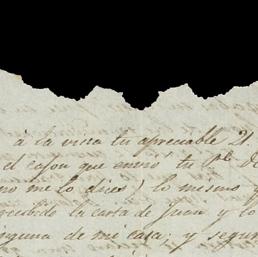 à la vista tu apreciable 21.
el cajon que envió tu Pe. D
no me lo dices) lo mismo y
recibido la carta de Juan y lo
ninguna de mi casa, y segun